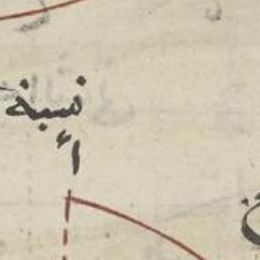 نسبة
أ